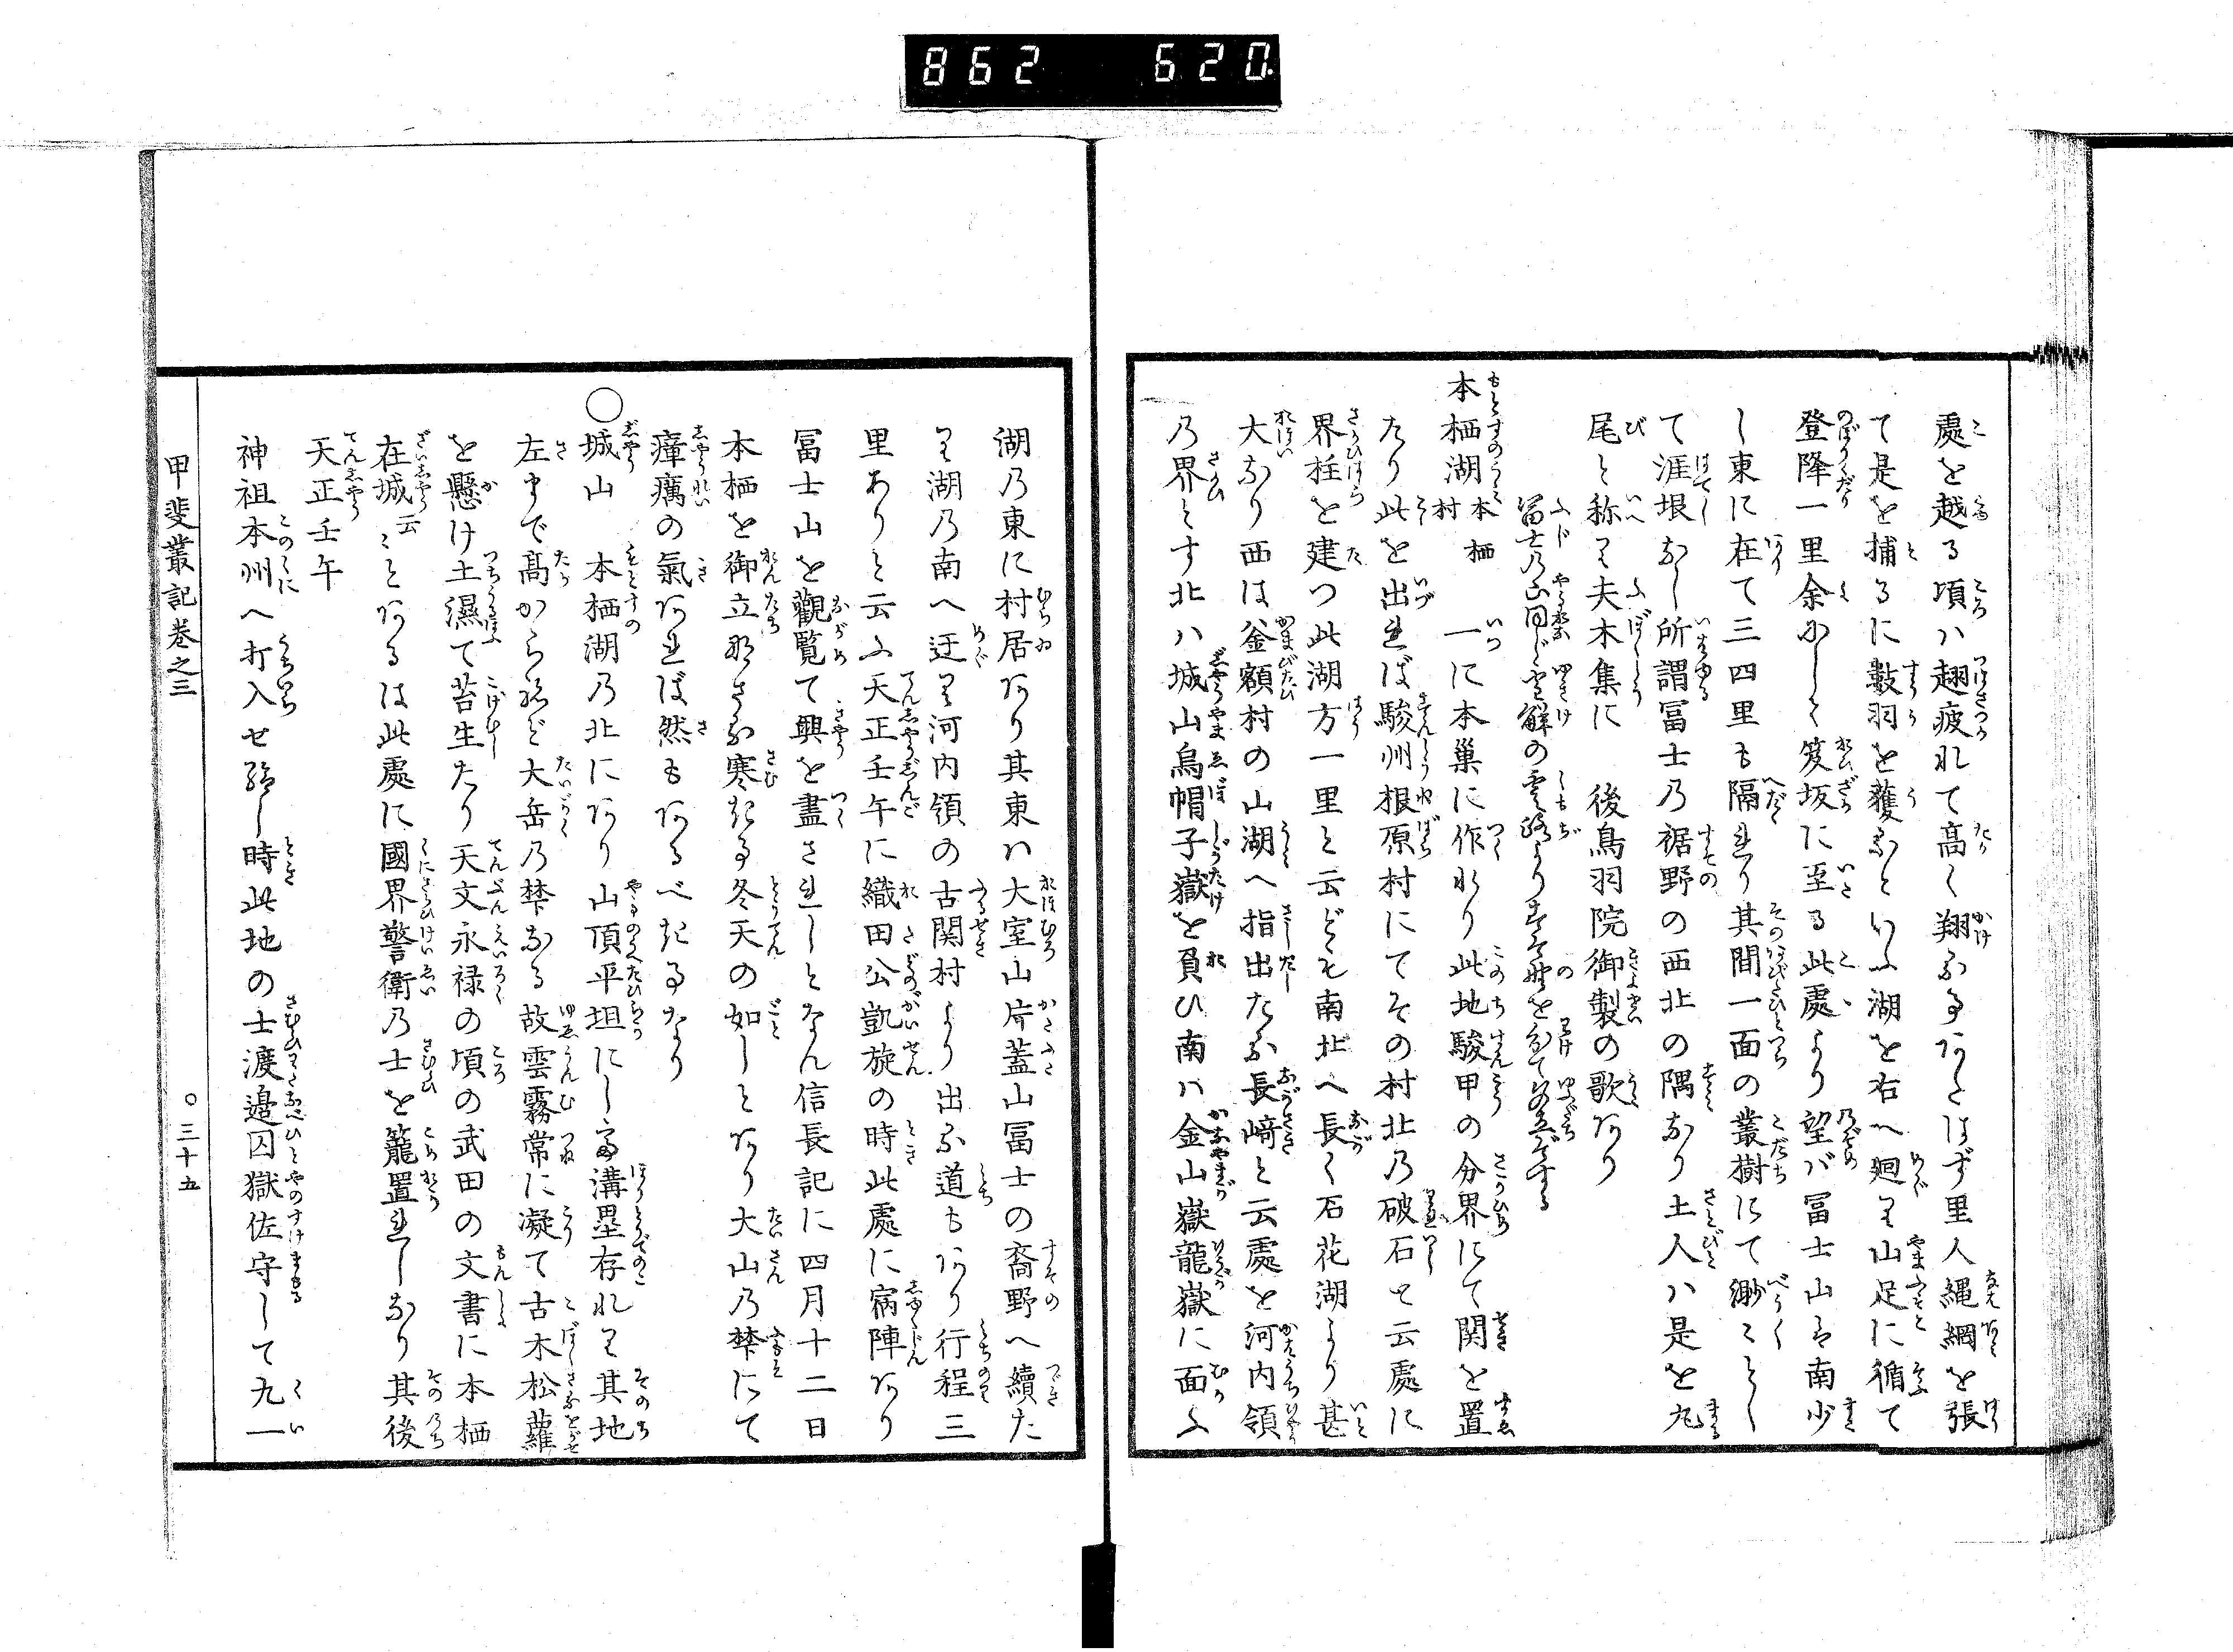 862 620
處を越る頃ハ翅疲れて高く翔る事あたはず里人縄網を張
て是を捕るに數羽を獲るといふ湖を右へ廻り山足に循て
登降一里余にして笈坂に至る此處より望バ冨士山は南少
し東に在て三四里も隔れり其間一面の叢樹にて渺々とし
て涯垠なし所謂冨士乃裾野の西北の隅なり土人ハ是を丸
尾と称す夫木集に　後鳥羽院御製の歌あり
本栖湖本栖村　一に本巣に作れり此地駿甲の分界にて関を置
たり此を出れば駿州根原村にてその村北乃破石と云處に
界柱を建つ此湖方一里と云ども南北へ長く石花湖より甚
大なり西は釜額村の山湖へ指出たる長﨑と云處を河内領
乃界とす北ハ城山烏帽子嶽を負ひ南ハ金山嶽龍嶽に面ふ
湖乃東に村居あり其東ハ大室山片蓋山冨士の裔野へ續た
り湖乃南へ迂り河内領の古関村より出る道もあり行程三
里ありと云ふ天正壬午に織田公凱旋の時此處に宿陣あり
冨士山を觀覧て興を盡されしとなん信長記に四月十二日
本栖を御立なさる寒き事冬天の如しとあり大山乃禁にて
瘴癘の氣あれば然もあるべき事なり
○城山　本栖湖乃北にあり山頂平坦にして溝塁存れり其地
左まで髙からねど大岳乃禁なる故雲霧常に凝て古木松蘿
を懸け土濕て苔生たり天文永禄の頃の武田の文書に本栖
在城云々とあるは此處に國界警衛乃士を籠置れしなり其後
天正壬午
神祖本州へ打入せ給し時此地の士渡邉囚獄佐守して九一
甲斐叢記巻之三
○三十五